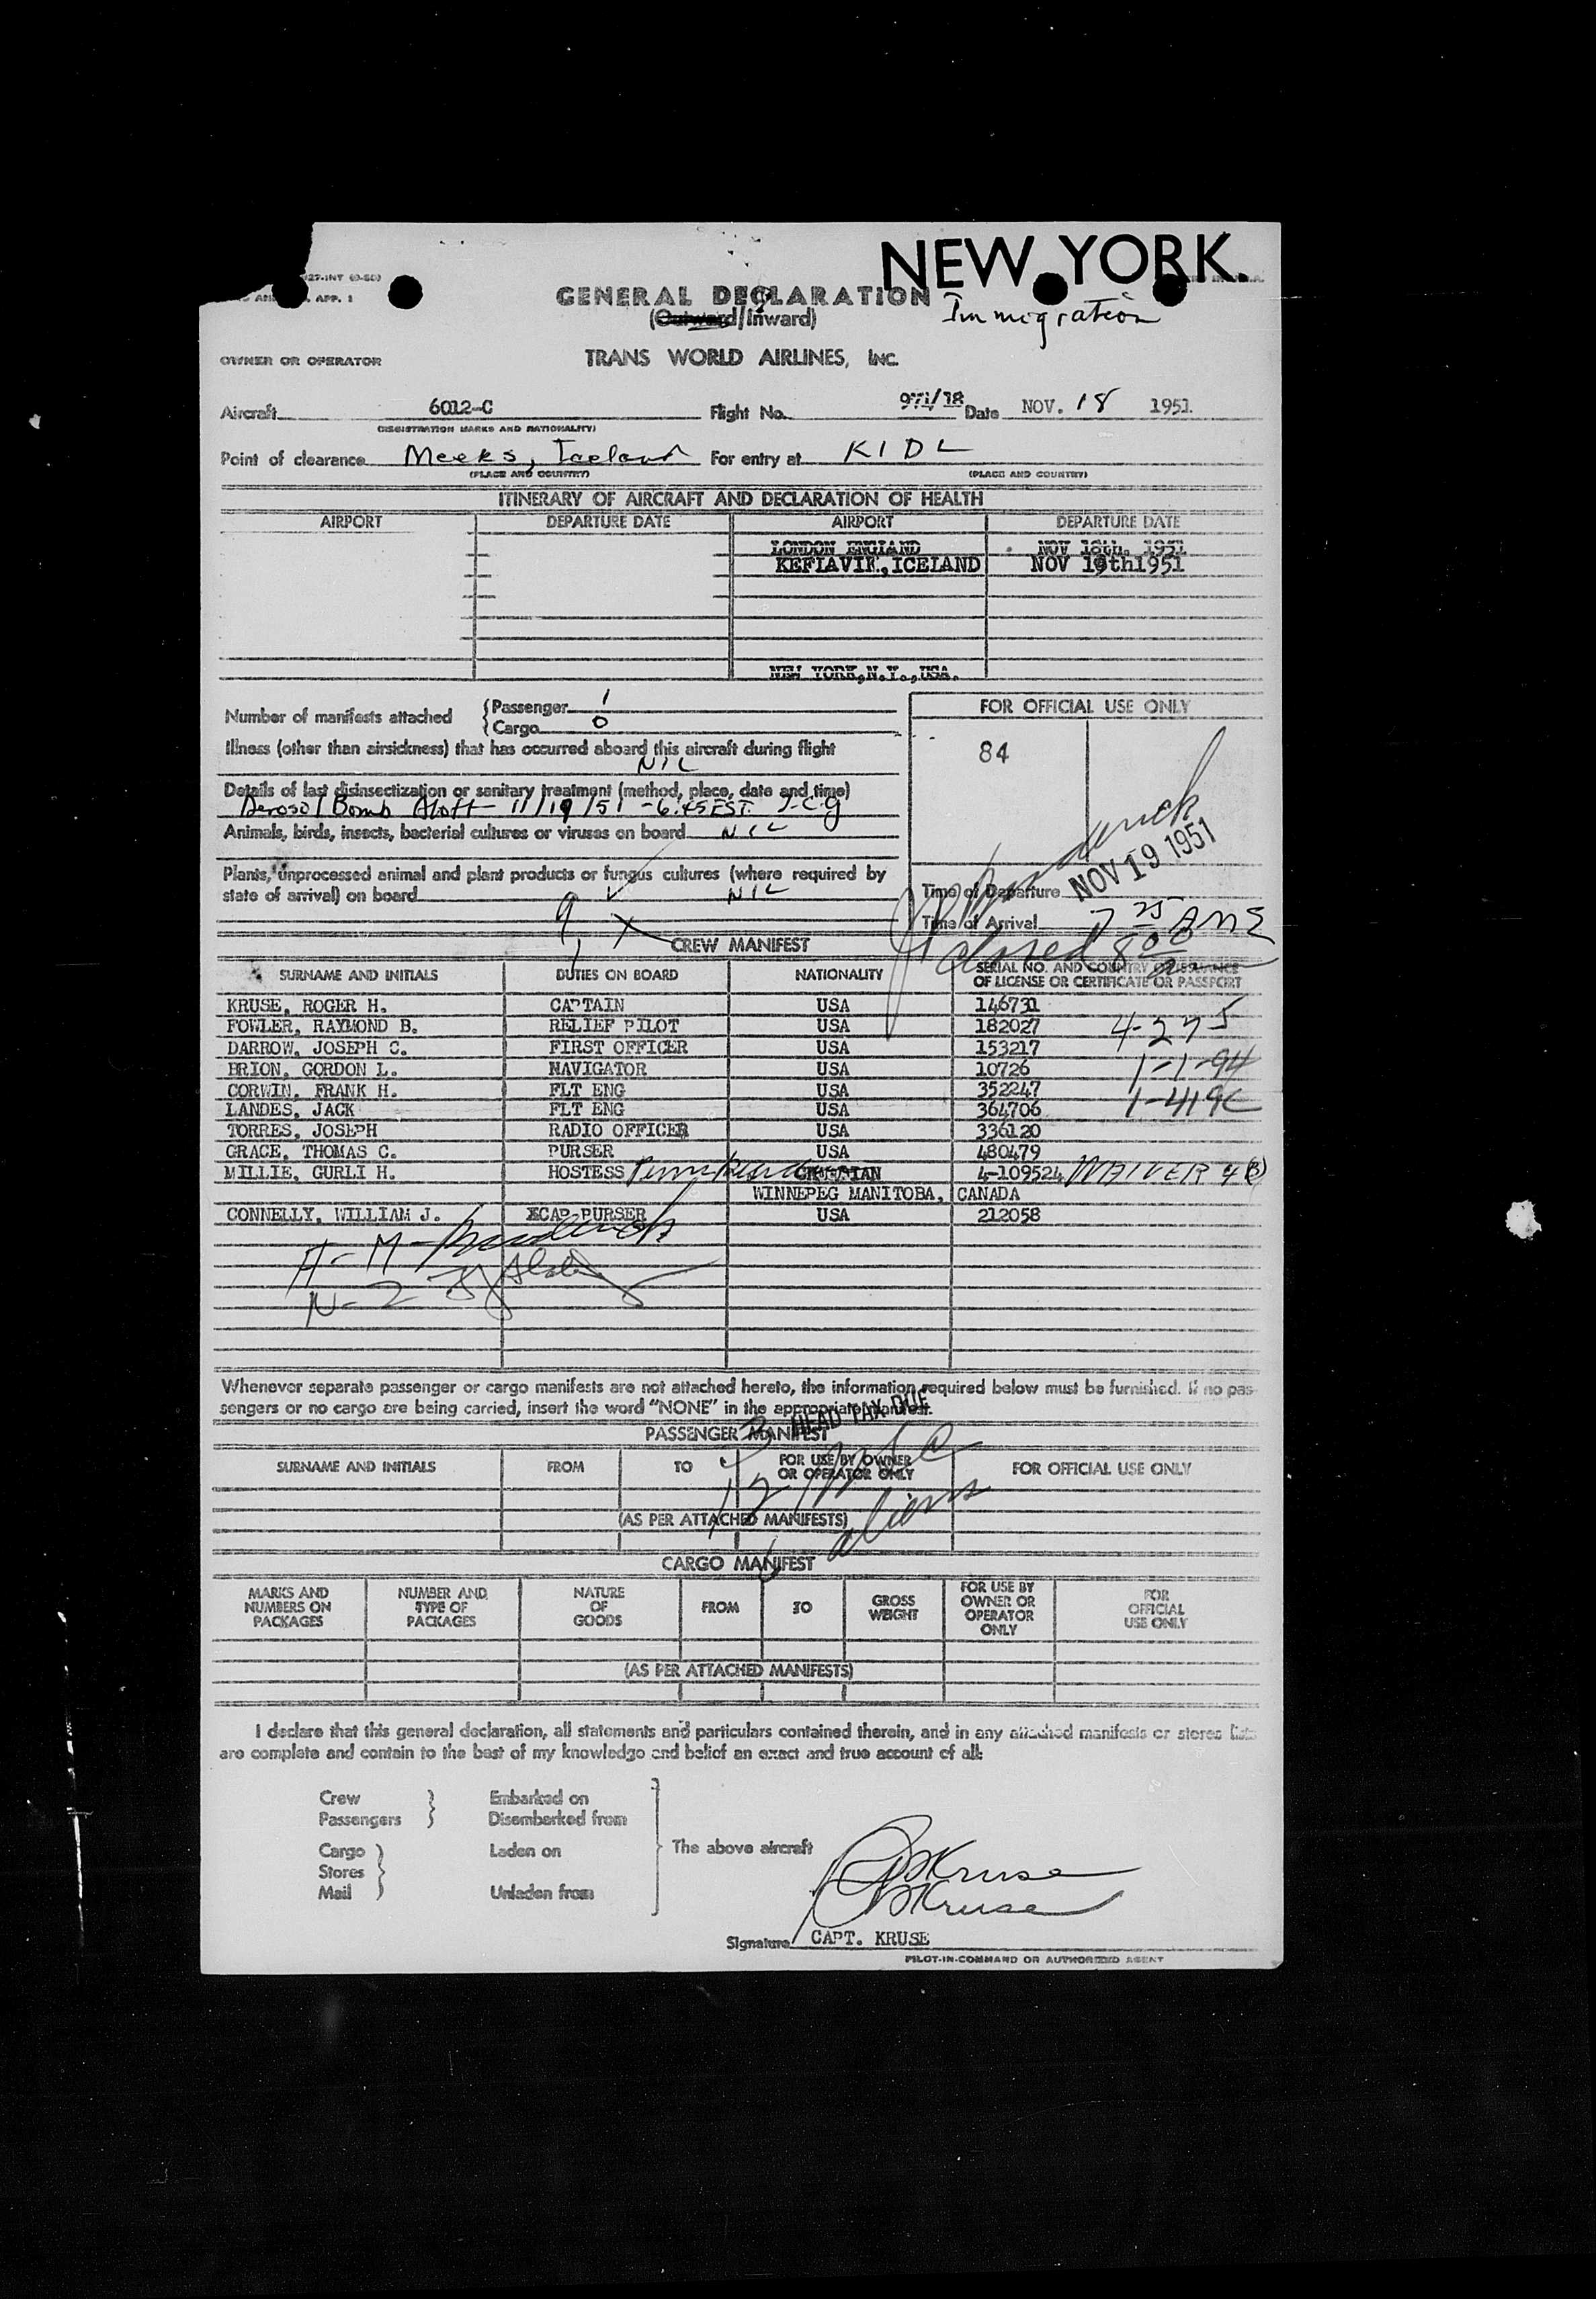 NEW YORK.
27-INT (9-50)
APP. 1
GENERAL DECLARATION
Immigration
(Outward/Inward)
OWNER OR OPERATOR TRANS WORLD AIRLINES, INC.
Aircraft 6012-C Flight No. 971/18 Date NOV. 18 1951
(REGISTRATION MARKS AND NATIONALITY)
Point of clearance Meeks, Iceland For entry at KIDL
(PLACE AND COUNTRY) (PLACE AND COUNTRY)
ITINERARY OF AIRCRAFT AND DECLARATION OF HEALTH
AIRPORT DEPARTURE DATE AIRPORT DEPARTURE DATE
LONDON ENGLAND NOV 18th. 1951
KEFLAVIK, ICELAND NOV 19th1951
NEW YORK, N.Y., USA.
Number of manifests attached
Passenger 1
Cargo 0
FOR OFFICIAL USE ONLY
84
Illness (other than airsickness) that has occurred aboard this aircraft during flight
NIL
Details of last disinsectization or sanitary treatment (method, place, date and time)
Aerosol Bomb Aloft - 11/19/51 - 6:45 EST. J.C.G
Animals, birds, insects, bacterial cultures or viruses on board NIL
Plants, unprocessed animal and plant products or fungus cultures (where required by
state of arrival) on board NIL
NOV 19 1951
Time of Departure
Time of Arrival 7 25 AME
closed 800
9 X
CREW MANIFEST
SURNAME AND INITIALS DUTIES ON BOARD NATIONALITY SERIAL NO. AND COUNTRY OF ISSUANCE
OF LICENSE OR CERTIFICATE OR PASSPORT
KRUSE, ROGER H. CAPTAIN USA 146731
FOWLER, RAYMOND B. RELIEF PILOT USA 182027 4-275
DARROW, JOSEPH C. FIRST OFFICER USA 153217
BRION, GORDON L. NAVIGATOR USA 10726 1-1-94
CORWIN, FRANK H. FLT ENG USA 352247
LANDES, JACK FLT ENG USA 364706 1-419C
TORRES, JOSEPH RADIO OFFICER USA 336120
GRACE, THOMAS C. PURSER USA 480479
MILLIE, GURLI H. HOSTESS 4-109524 WAIVER 4(B)
WINNEPEG MANITOBA, CANADA
CONNELLY, WILLIAM J. XCAP-PURSER USA 212058
H-M-
N-2
Whenever separate passenger or cargo manifests are not attached hereto, the information required below must be furnished. If no pas-
sengers or no cargo are being carried, insert the word "NONE" in the appropriate manifest.
HEAD TAX DUE
PASSENGER MANIFEST
SURNAME AND INITIALS FROM TO FOR USE BY OWNER
OR OPERATOR ONLY FOR OFFICIAL USE ONLY
aliens
(AS PER ATTACHED MANIFESTS)
CARGO MANIFEST
MARKS AND
NUMBERS ON
PACKAGES
NUMBER AND
TYPE OF
PACKAGES
NATURE
OF
GOODS
FROM
TO
GROSS
WEIGHT
FOR USE BY
OWNER OR
OPERATOR
ONLY
FOR
OFFICIAL
USE ONLY
(AS PER ATTACHED MANIFESTS)
I declare that this general declaration, all statements and particulars contained therein, and in any attached manifests or stores lists
are complete and contain to the best of my knowledge and belief an exact and true account of all:
Crew Embarked on
Passengers Disembarked from
Cargo Laden on The above aircraft
Stores
Mail Unladen from
Kruse
Kruse
Signature CAPT. KRUSE
PILOT-IN-COMMAND OR AUTHORIZED AGENT